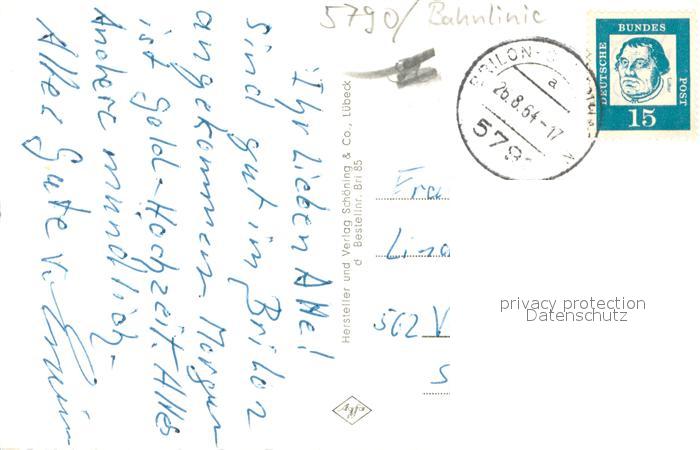 5790/ Bahnlinie
Ihr Lieben Alle!
Sind gut im Brilon
angekommen. Morgen
ist Gold-Hochzeit. Alles
Andere mündlich.
Alles Gute v.
Hersteller und Verlag Schöning & Co., Lübeck
Bestellnr. Bri 85
BRILON
a
26.8.64-17
579
DEUTSCHE
BUNDES
POST
15
562 V
privacy protection
Datenschutz